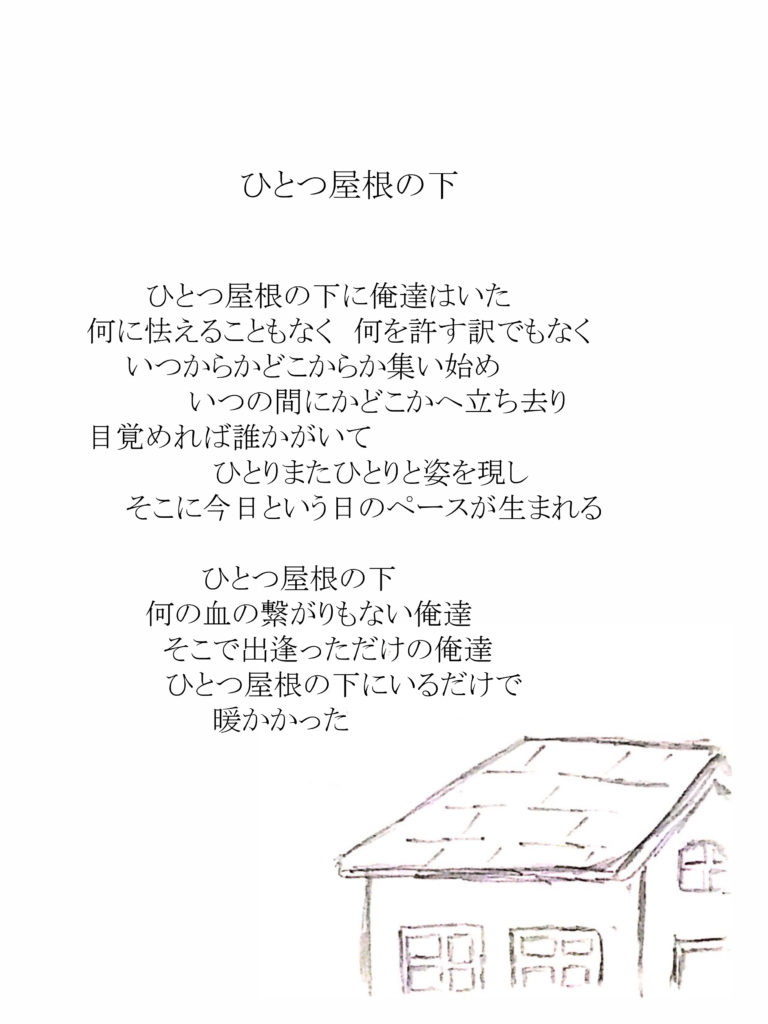 ひとつ屋根の下
ひとつ屋根の下に俺達はいた
何に怯えることもなく　何を許す訳でもなく
いつからかどこからか集い始め
いつの間にかどこかへ立ち去り
目覚めれば誰かがいて
ひとりまたひとりと姿を現し
そこに今日という日のペースが生まれる
ひとつ屋根の下
何の血の繋がりもない俺達
そこで出逢っただけの俺達
ひとつ屋根の下にいるだけで
暖かかった